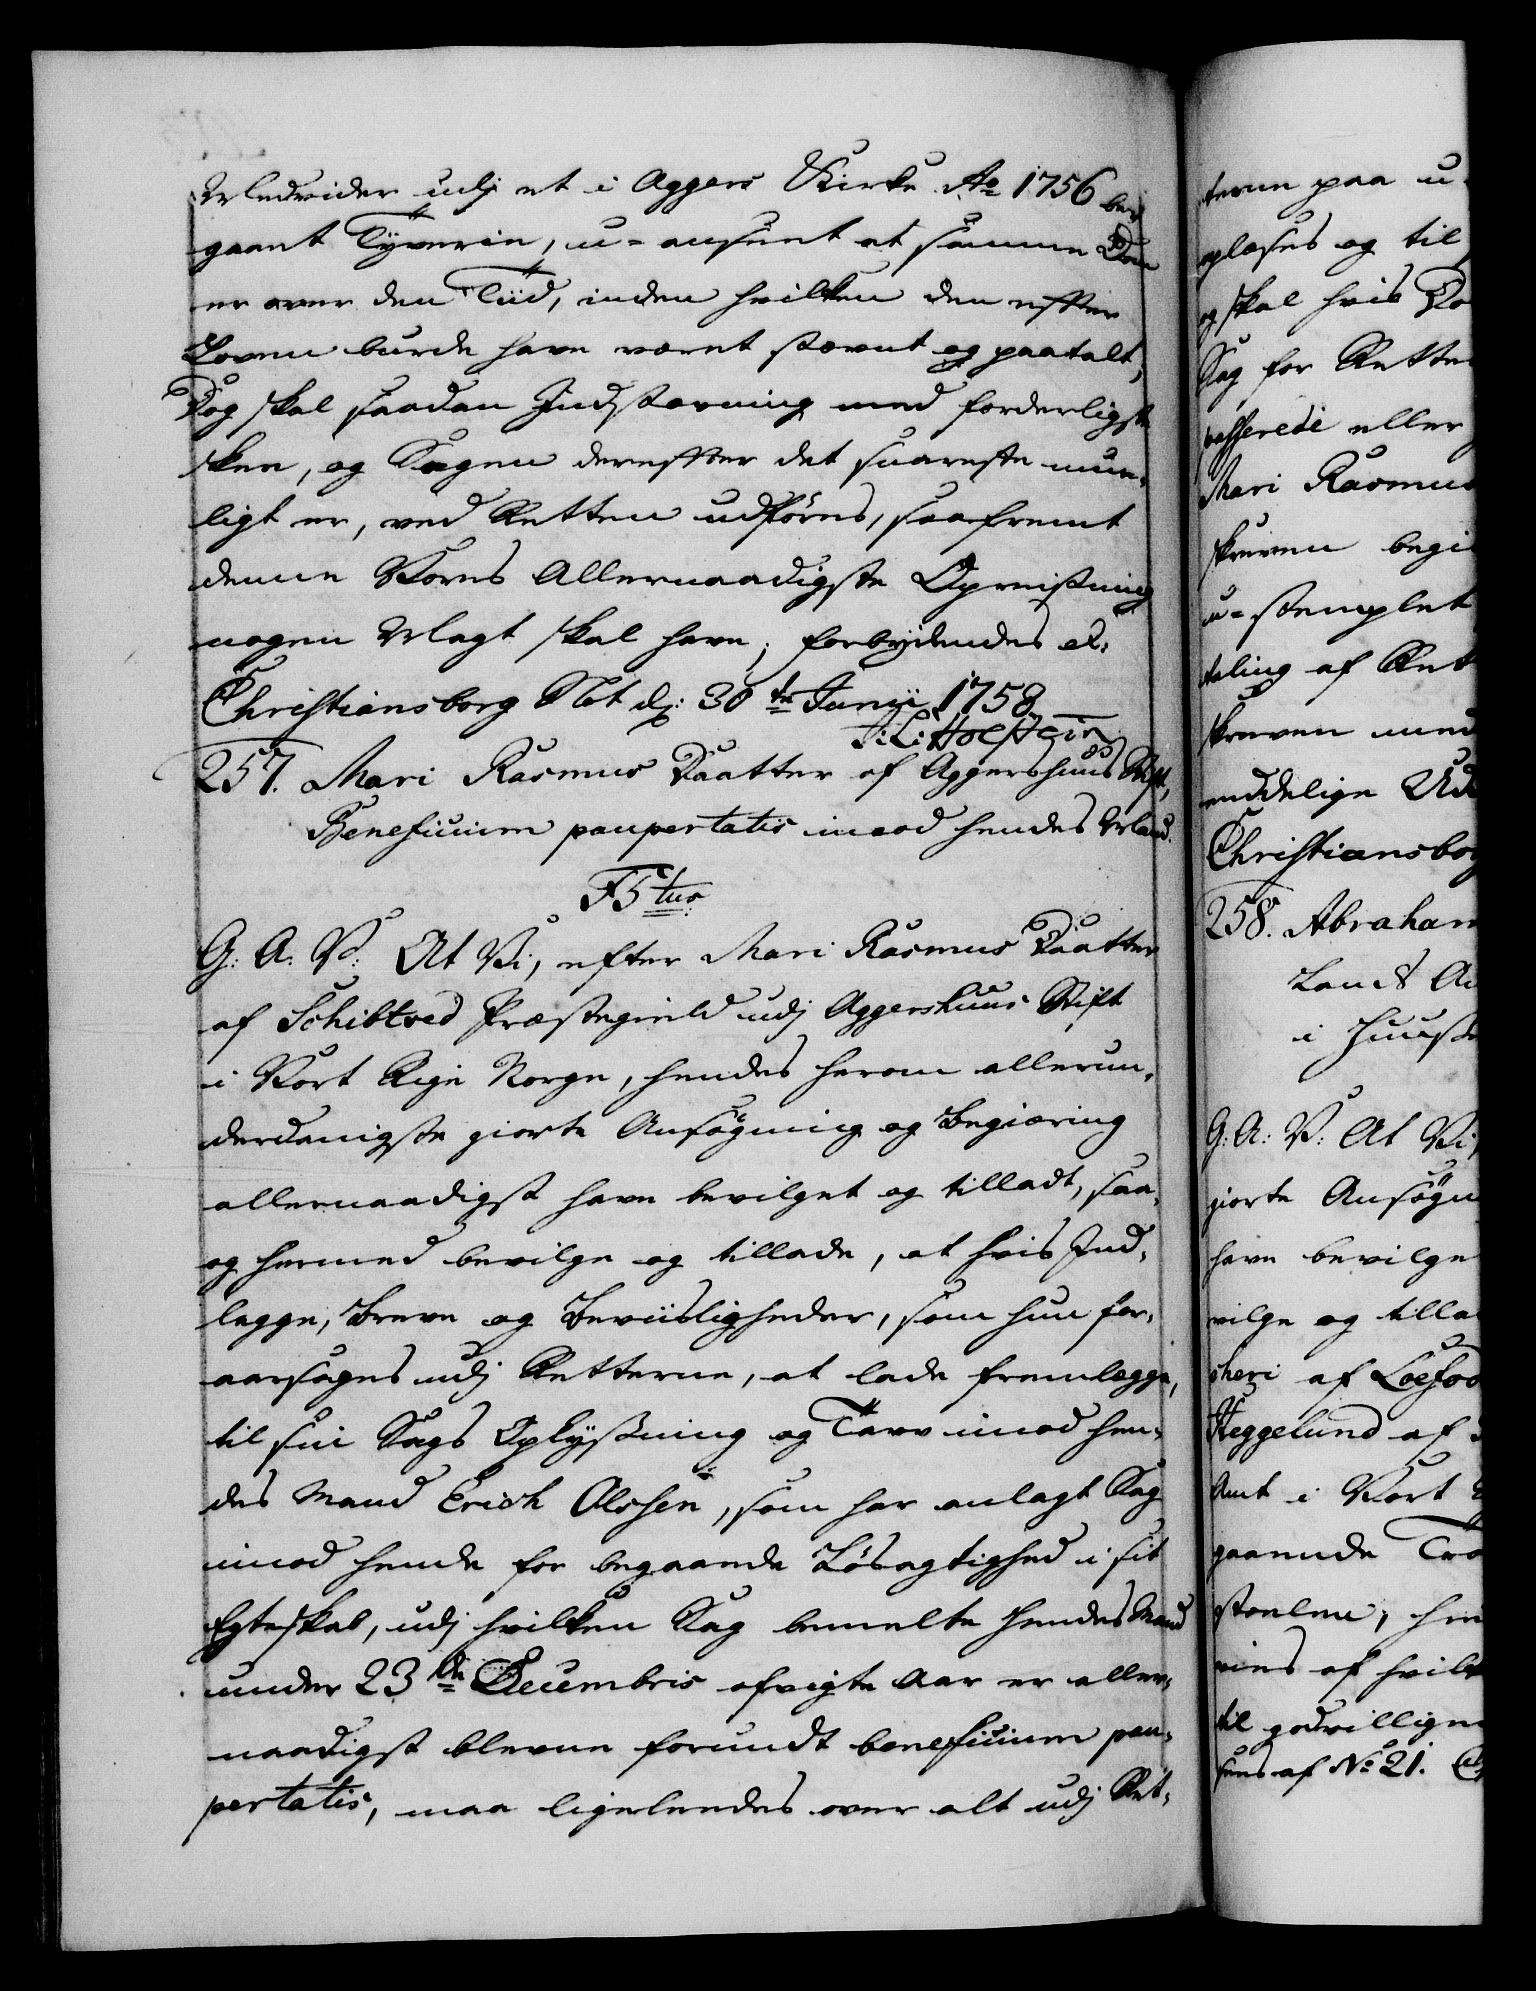 udj et i Aggers Kirke Ao 1756 be¬
gaaet Tÿverie, u-anseet at samme Dom
er over den Tiid, inden hvilken den efter
Loven burde have været stævnt og paatalt,
Dog skal saadan Indstævning med forderligste
skee, og Sagen derefter det snareste mue¬
ligt er, ved Retten udføres, saafremt
denne Vores Allernaadigste Opreisning
nogen Magt skal have; forbydendes etc.
Christiansborg Slot d: 30te Junij 1758
J: L: Holstein
257. Mari Rasmus Daatter af Aggershuus Stift,
Beneficium paupertatis imod hendes Mand.
F5tus
G: A: V: At Vi, efter Mari Rasmus Daatter
af Schibtved Præstegield udj Aggershuus Stift
i Vort Rige Norge, hendes herom allerun¬
derdanigste giorte Ansøgning og Begiæring
allernaadigst have bevilget og tilladt, saa¬
og hermed bevilge og tillade, at hvis Ind¬
legge, Breve og Beviisligheder, som hun for¬
aarsages udj Retterne, at lade fremlegge,
til sin Sags Oplÿsning og Tarv imod hen¬
des Mand Erich Olssen, som har anlagt Sag
imod hende for begaaende Løsagtighed i sit
Egteskab, udj hvilken Sag bemelte hendes Mand
under 23de Decembris afvigte Aar er aller¬
naadigst bleven forundt beneficium pau¬
pertatis, maa ligeledes over alt udj Ret¬
terne paa u
oplæses og til
og skal hvis Do
Sag for Rette
passerede eller
Mari Rasmus
skreven begi
u-stemplet
taling af Ret
skreven med
endelige Ud
Christiansborg
258. Abraham
Landt A
i Huuse
G: A: V: At Vi,
giorte Ansøgn
have bevilge
vilge og tilla
af Loefod
Heggelund af
Amt i Vort
gaaende Tro
til godvilligen
af No 21. C